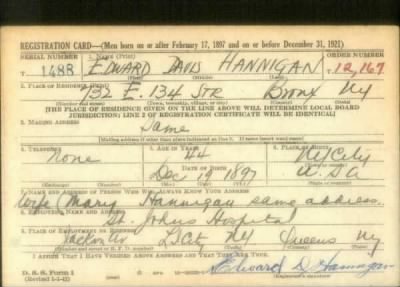 REGISTRATION CARD—(Men born on or after February 17, 1897 and on or before December 31, 1921)
SERIAL NUMBER 1. NAME (Print) ORDER NUMBER
T 1488 EDWARD DAVIS HANNIGAN T 12,167
(First) (Middle) (Last)
2. PLACE OF RESIDENCE (Print)
732 E. 134 STR Bronx NY
(Number and street) (Town, township, village, or city) (County) (State)
[THE PLACE OF RESIDENCE GIVEN ON THE LINE ABOVE WILL DETERMINE LOCAL BOARD
JURISDICTION; LINE 2 OF REGISTRATION CERTIFICATE WILL BE IDENTICAL]
3. MAILING ADDRESS
Same
[Mailing address if other than place indicated on line 2. If same insert word same]
4. TELEPHONE 5. AGE IN YEARS 6. PLACE OF BIRTH
None 44 NY City
DATE OF BIRTH
Dec 19 1897 U.S.A
(Exchange) (Number) (Mo.) (Day) (Yr.) (State or country)
7. NAME AND ADDRESS OF PERSON WHO WILL ALWAYS KNOW YOUR ADDRESS
Wife (Mary Hannigan same address.
8. EMPLOYER'S NAME AND ADDRESS
St. Johns Hospital
9. PLACE OF EMPLOYMENT OR BUSINESS
Jackson Av L I City NY Queens NY
(Number and street or R. F. D. number) (Town) (County) (State)
I AFFIRM THAT I HAVE VERIFIED ABOVE ANSWERS AND THAT THEY ARE TRUE.
D. S. S. Form 1
(Revised 1-1-42) (over)
Edward D Hannigan